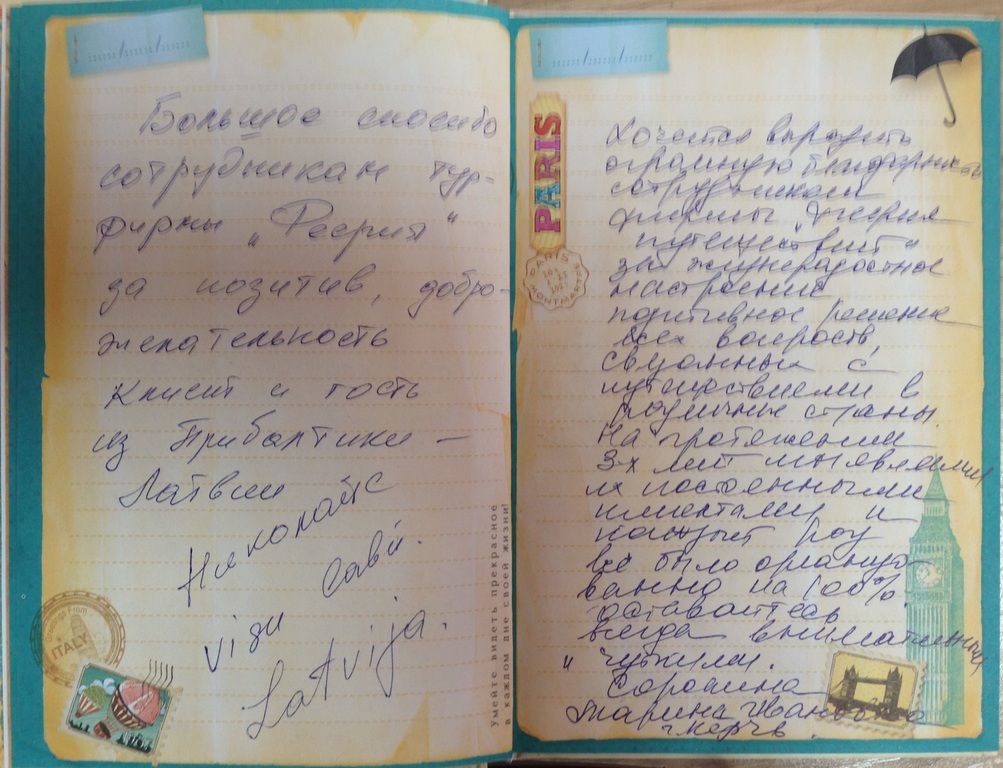 Большое спасибо
сотрудникам тур-
фирмы „Феерия"
за позитив, добро-
желательность
Клиент и гость
из Прибалтики –
Латвии
Николайс
Savi.
visu
Latvija.
Умейте видеть прекрасное
в каждом дне своей жизни!
Greetings From
ITALY
PARIS
PARIS
MONTMARTRE
Хочется выразить
огромную благодарность
сотрудникам
фирмы „Феерия
путешествий"
за жизнерадостное
настроение
позитивное решение
всех вопросов,
связанных с
путешествиями в
различные страны.
На протяжении
3-х лет мы являемся
их постоянными
клиентами и
каждый раз
всё было организо
ванно на 100%
оставайтесь
всегда внимательными
и чуткими.
Сорокина
Марина Ивановна
г. Керчь.